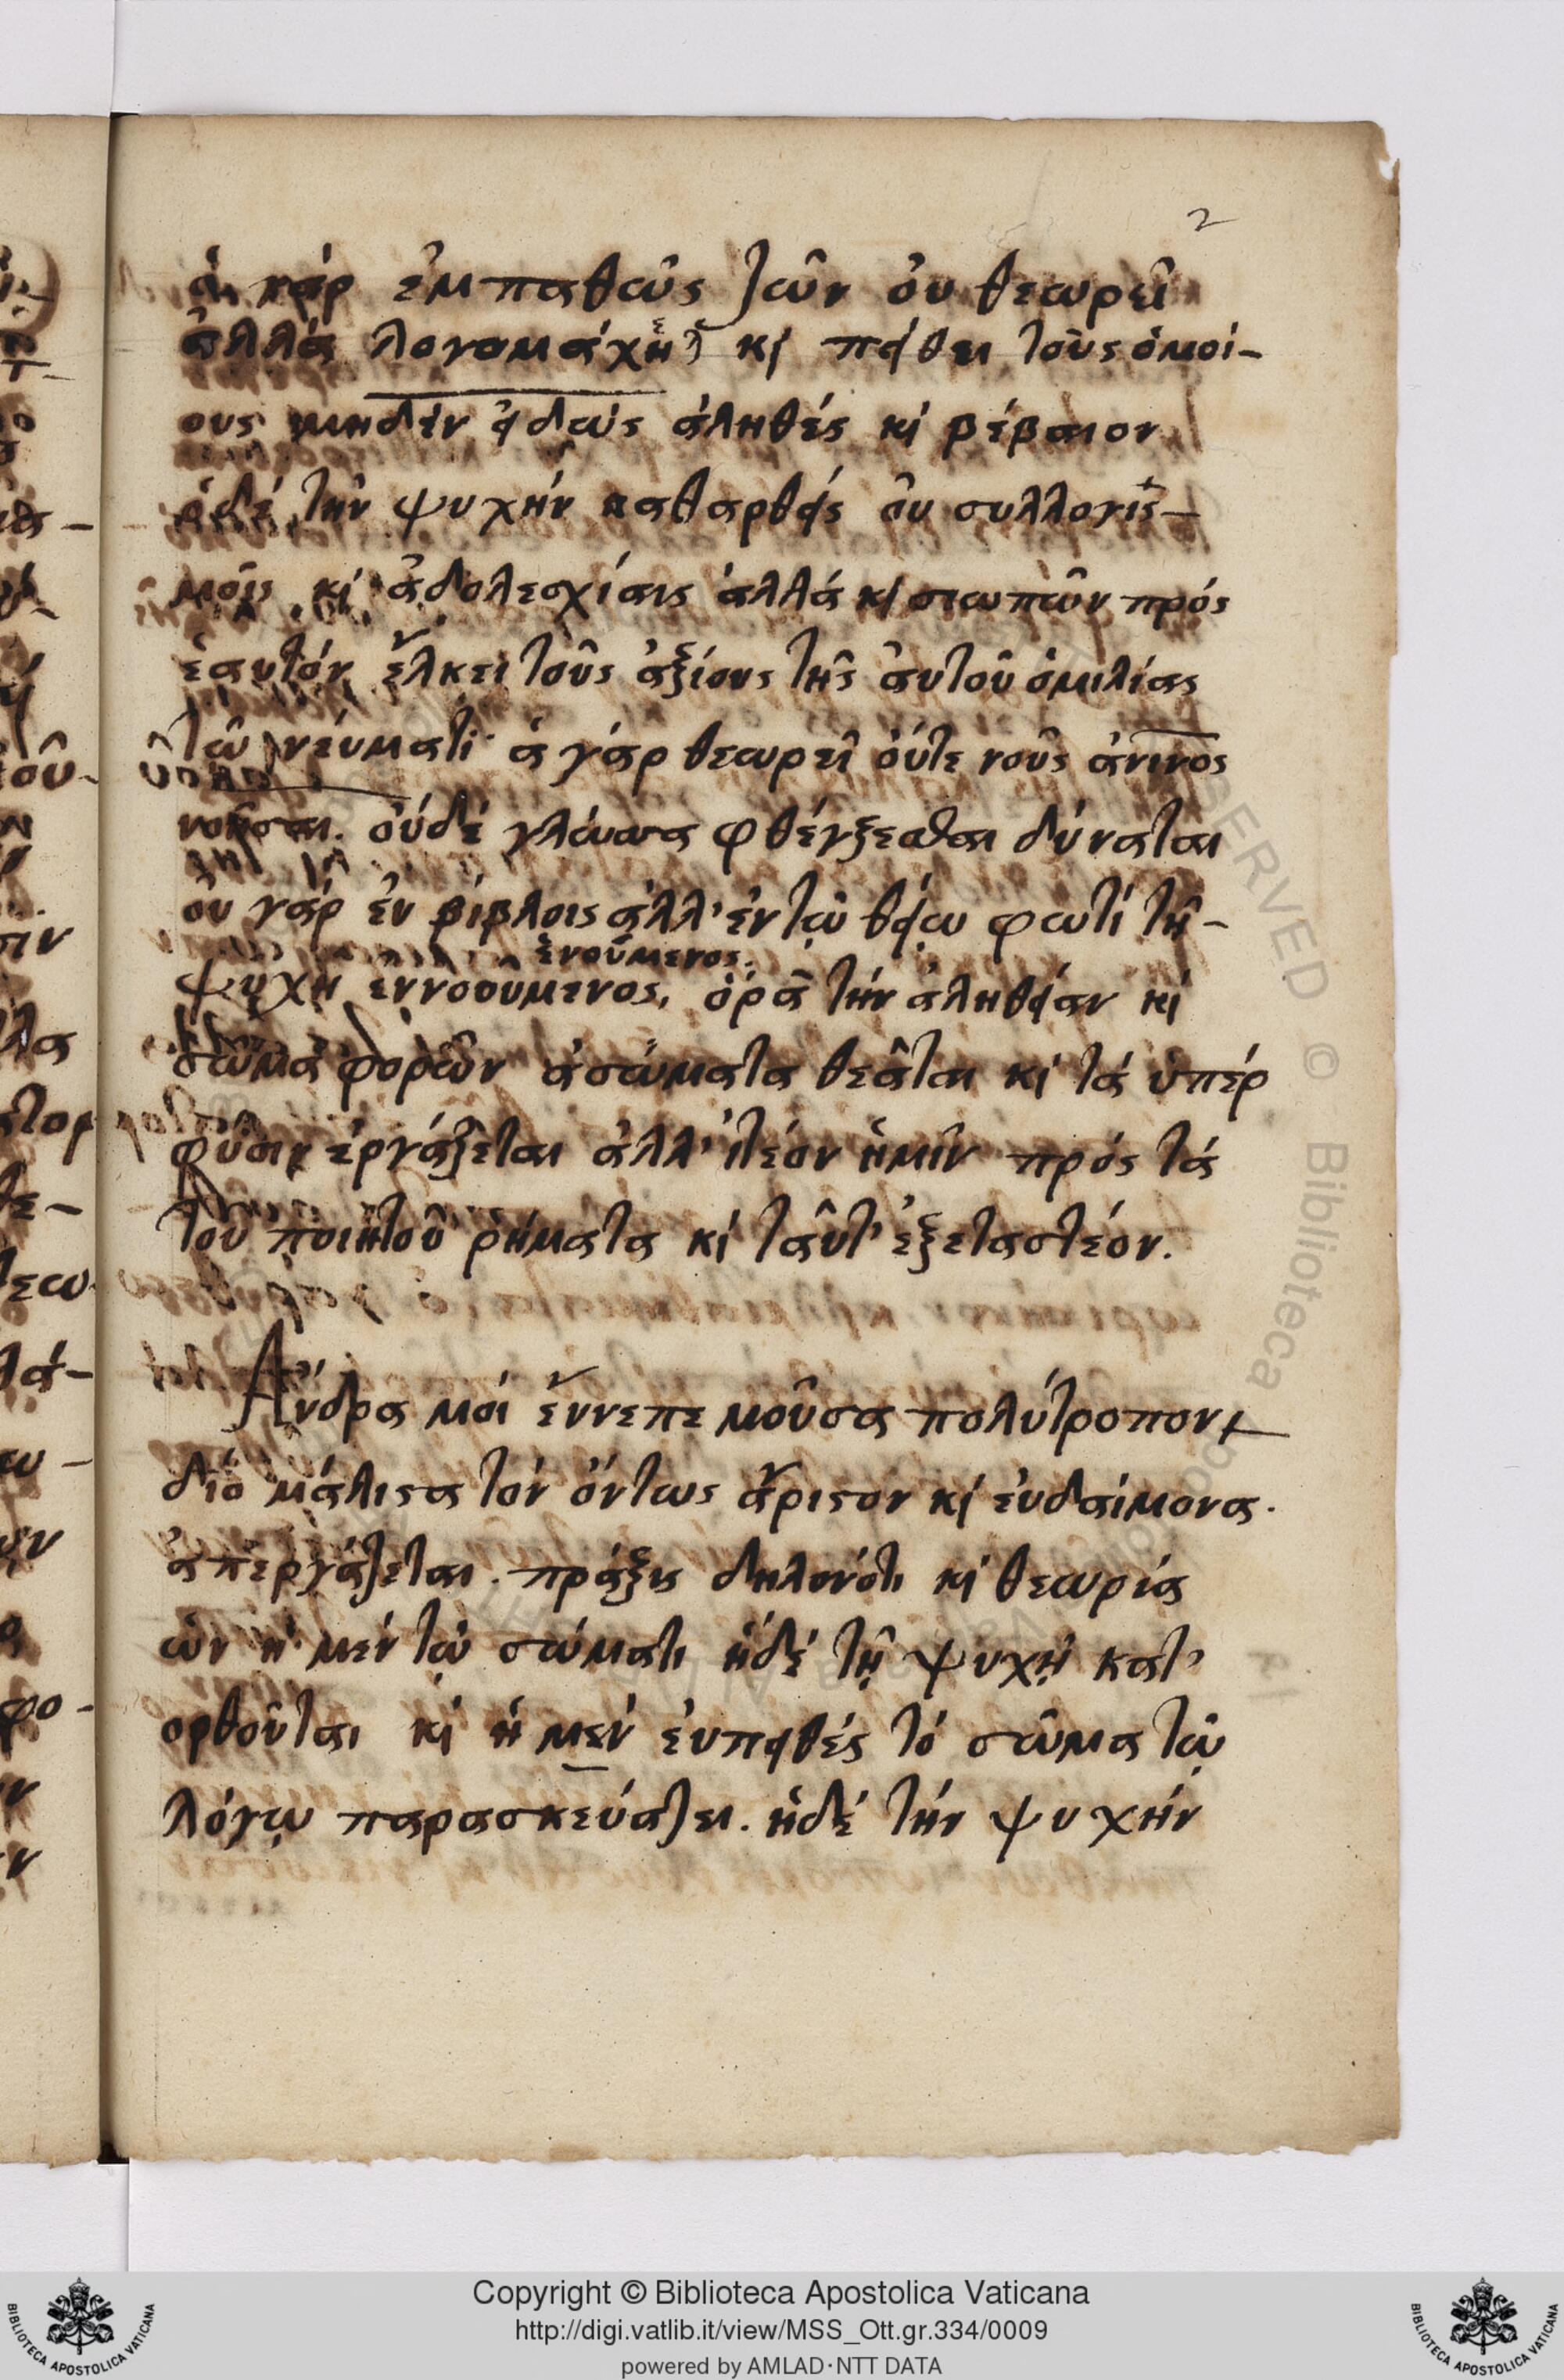 2
ὁ γάρ ἐμπαθῶς ζῶν ὀυ θεωρεῖ
ἀλλά λογομάχει κί πείθει τοὺς ὁμοί-
ους μηδέν ειδώς ἀληθές κί βέβαιον
ὁδέ τήν ψυχήν καθαρθείς ὀυ συλλογισ-
μοῖς κί ἀδολεσχίαις ἀλλά κί σιωπῶν πρός
ἑαυτόν ἕλκει τοῦς ἀξίους τῆς ἀυτοῦ ὁμιλίας
τῶ νέυματι ἁ γάρ θεωρεῖ ὀύτε νοῦς ἀνινος
νοῆσαι. ὀυδέ γλῶσσα φθέγξεσθαι δύναται
ὀυ γάρ ἐν βίβλοις ἀλλ' ἐν τῷ θείῳ φωτί τῆ-
ἑνούμενος.
ψυχῆ ἐννοούμενος, ὁρᾶ τήν ἀληθείαν κί
σῶμα φορῶν ἀσώματα θεᾶται κί τά ὑπέρ
φύσιν ἐργάζεται ἀλλ' ἰτέον ἡμῖν πρός τά
του ποιητοῦ ῥήματα κί ταῦτ' ἐξεταστέον.
Ἄνδρα μοί ἔννεπε μοῦσα πολύτροπον
διό μάλιστα τόν ὄντως ἄριστον κί ἐυδαίμονα.
ἀπεργάζεται. πράξις δηλονότι κί θεωρία
ὧν ἡ μέν τῷ σώματι ἡδέ τῇ ψυχῇ κατ'
ορθοῦται κί ἡ μέν ἐυπειθές τό σῶμα τῷ
λόγῳ παρασκευάζει. ἡδέ τήν ψυχήν
Copyright © Biblioteca Apostolica Vaticana
http://digi.vatlib.it/view/MSS_Ott.gr.334/0009
powered by AMLAD·NTT DATA
BIBLIOTECA APOSTOLICA VATICANA
BIBLIOTECA APOSTOLICA VATICANA